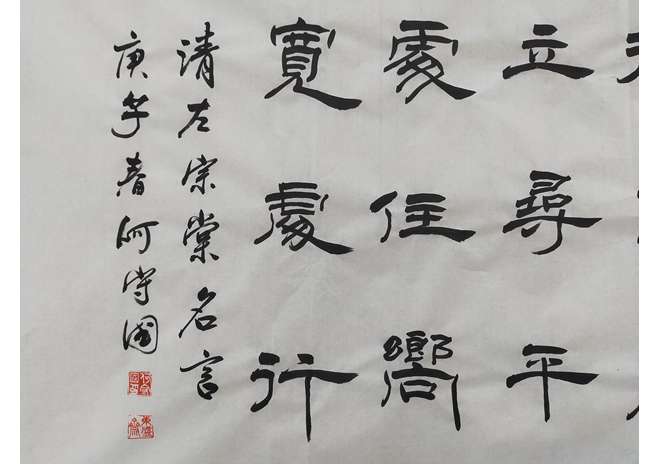 立尋平
處住嚮
寬處行
清左宗棠名言
庚子春何國